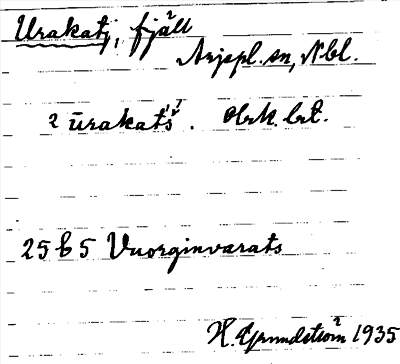 Urakatj, fjäll
Arjepl. sn, Nbl.
2 ūrakatš́. obrk. brt.
25 b 5 Vuorginvarats
H. Grundström 1935